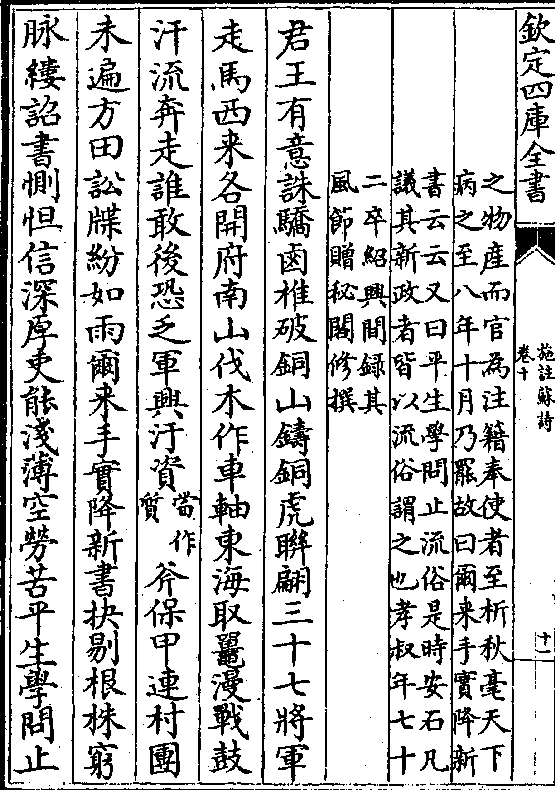 欽定四庫全書
施註蘇詩
卷十
十一
之物産而官為注籍奉使者至析秋毫天下
病之至八年十月乃罷故曰爾来手實降新
書云云又曰平生學問止流俗是時安石凡
議其新政者皆以流俗謂之也孝叔年七十
二卒紹興間録其
風節贈秘閣修撰
君王有意誅驕鹵椎破銅山鑄銅虎聨翩三十七將軍
走馬西来各開府南山伐木作車軸東海取鼉漫戰鼓
汗流奔走誰敢後恐乏軍興汙資當作質斧保甲連村團
未遍方田訟牒紛如雨爾来手實降新書抉剔根株窮
脉縷詔書惻怛信深厚吏能淺薄空勞苦平生學問止